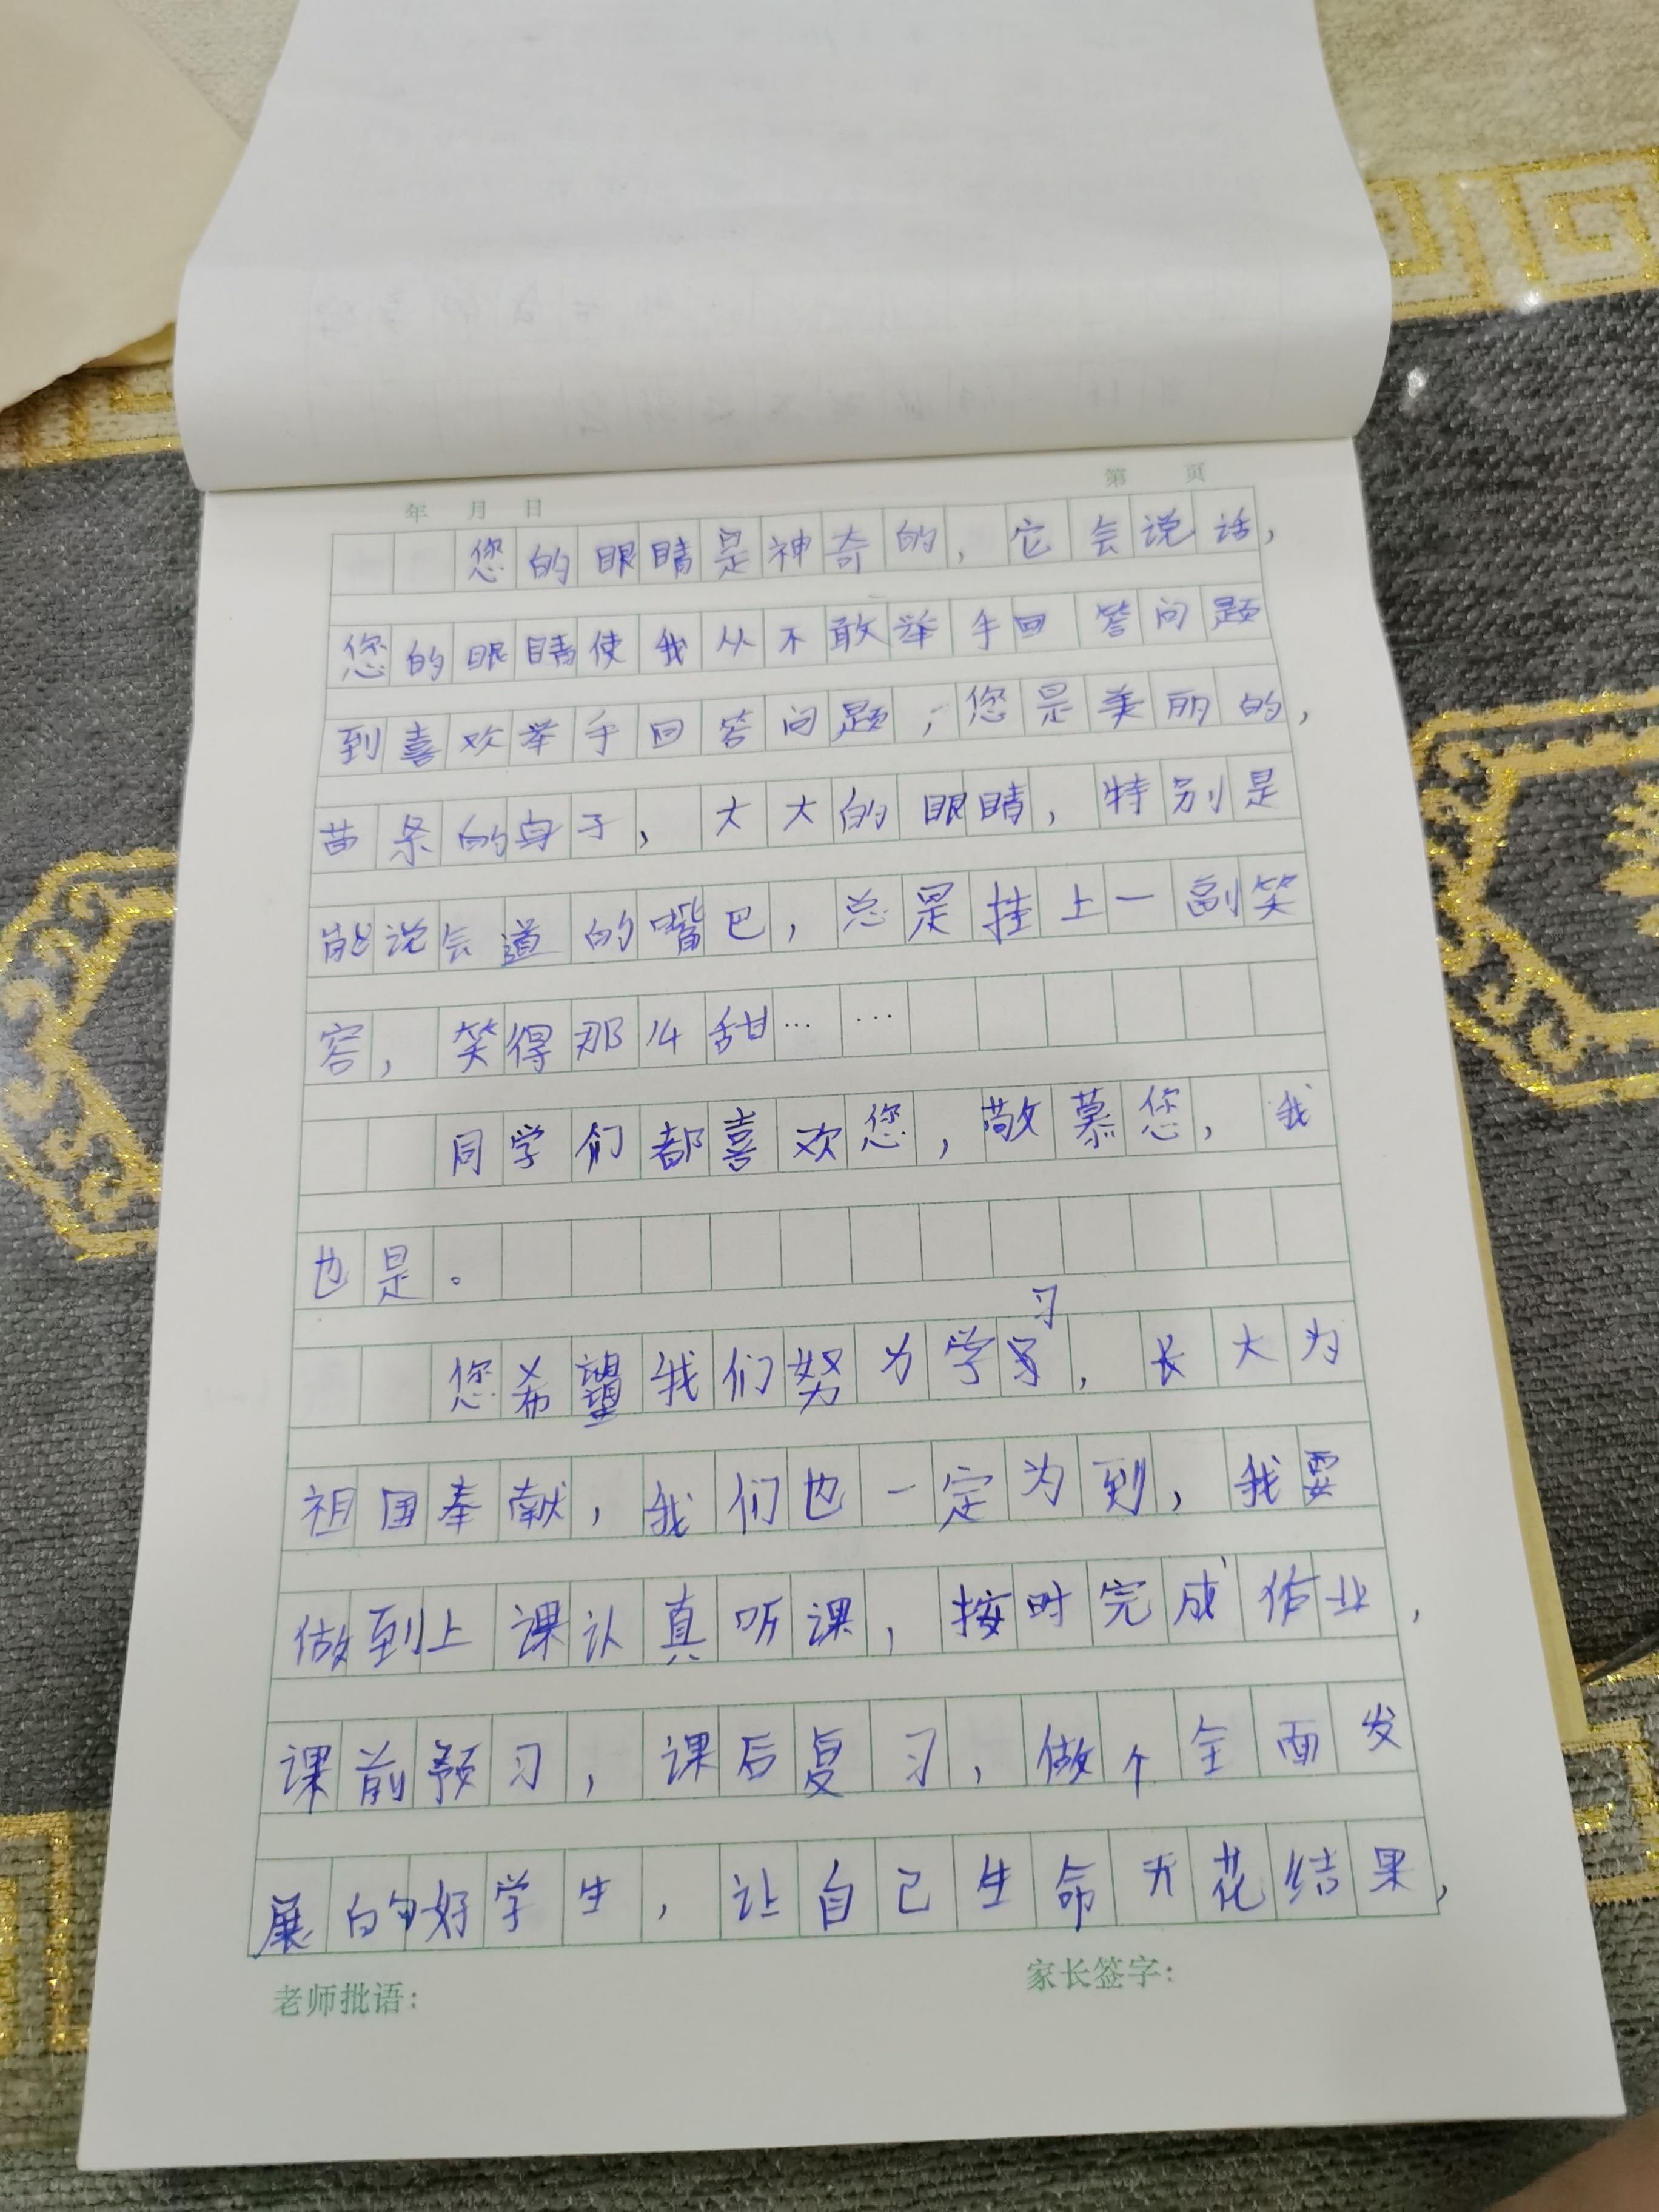 年 月 日
第 页
您的眼睛是神奇的，它会说话，
您的眼睛使我从不敢举手回答问题
到喜欢举手回答问题，您是美丽的，
苗条的身子，大大的眼睛，特别是
能说会道的嘴巴，总是挂上一副笑
容，笑得那么甜……
同学们都喜欢您，敬慕您，我
也是。
习
您希望我们努力学习，长大为
祖国奉献，我们也一定为到，我要
做到上课认真听课，按时完成作业，
课前预习，课后复习，做个全面发
展的好学生，让自己生命开花结果，
老师批语：
家长签字：